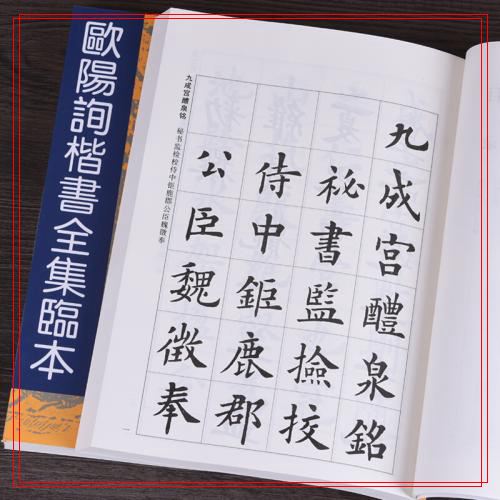 歐陽詢楷書全集臨本
九成宫醴泉铭
秘书监检校侍中钜鹿郡公臣魏徵奉
九成宮醴泉銘
祕書監撿挍
侍中鉅鹿郡
公臣魏徵奉
一